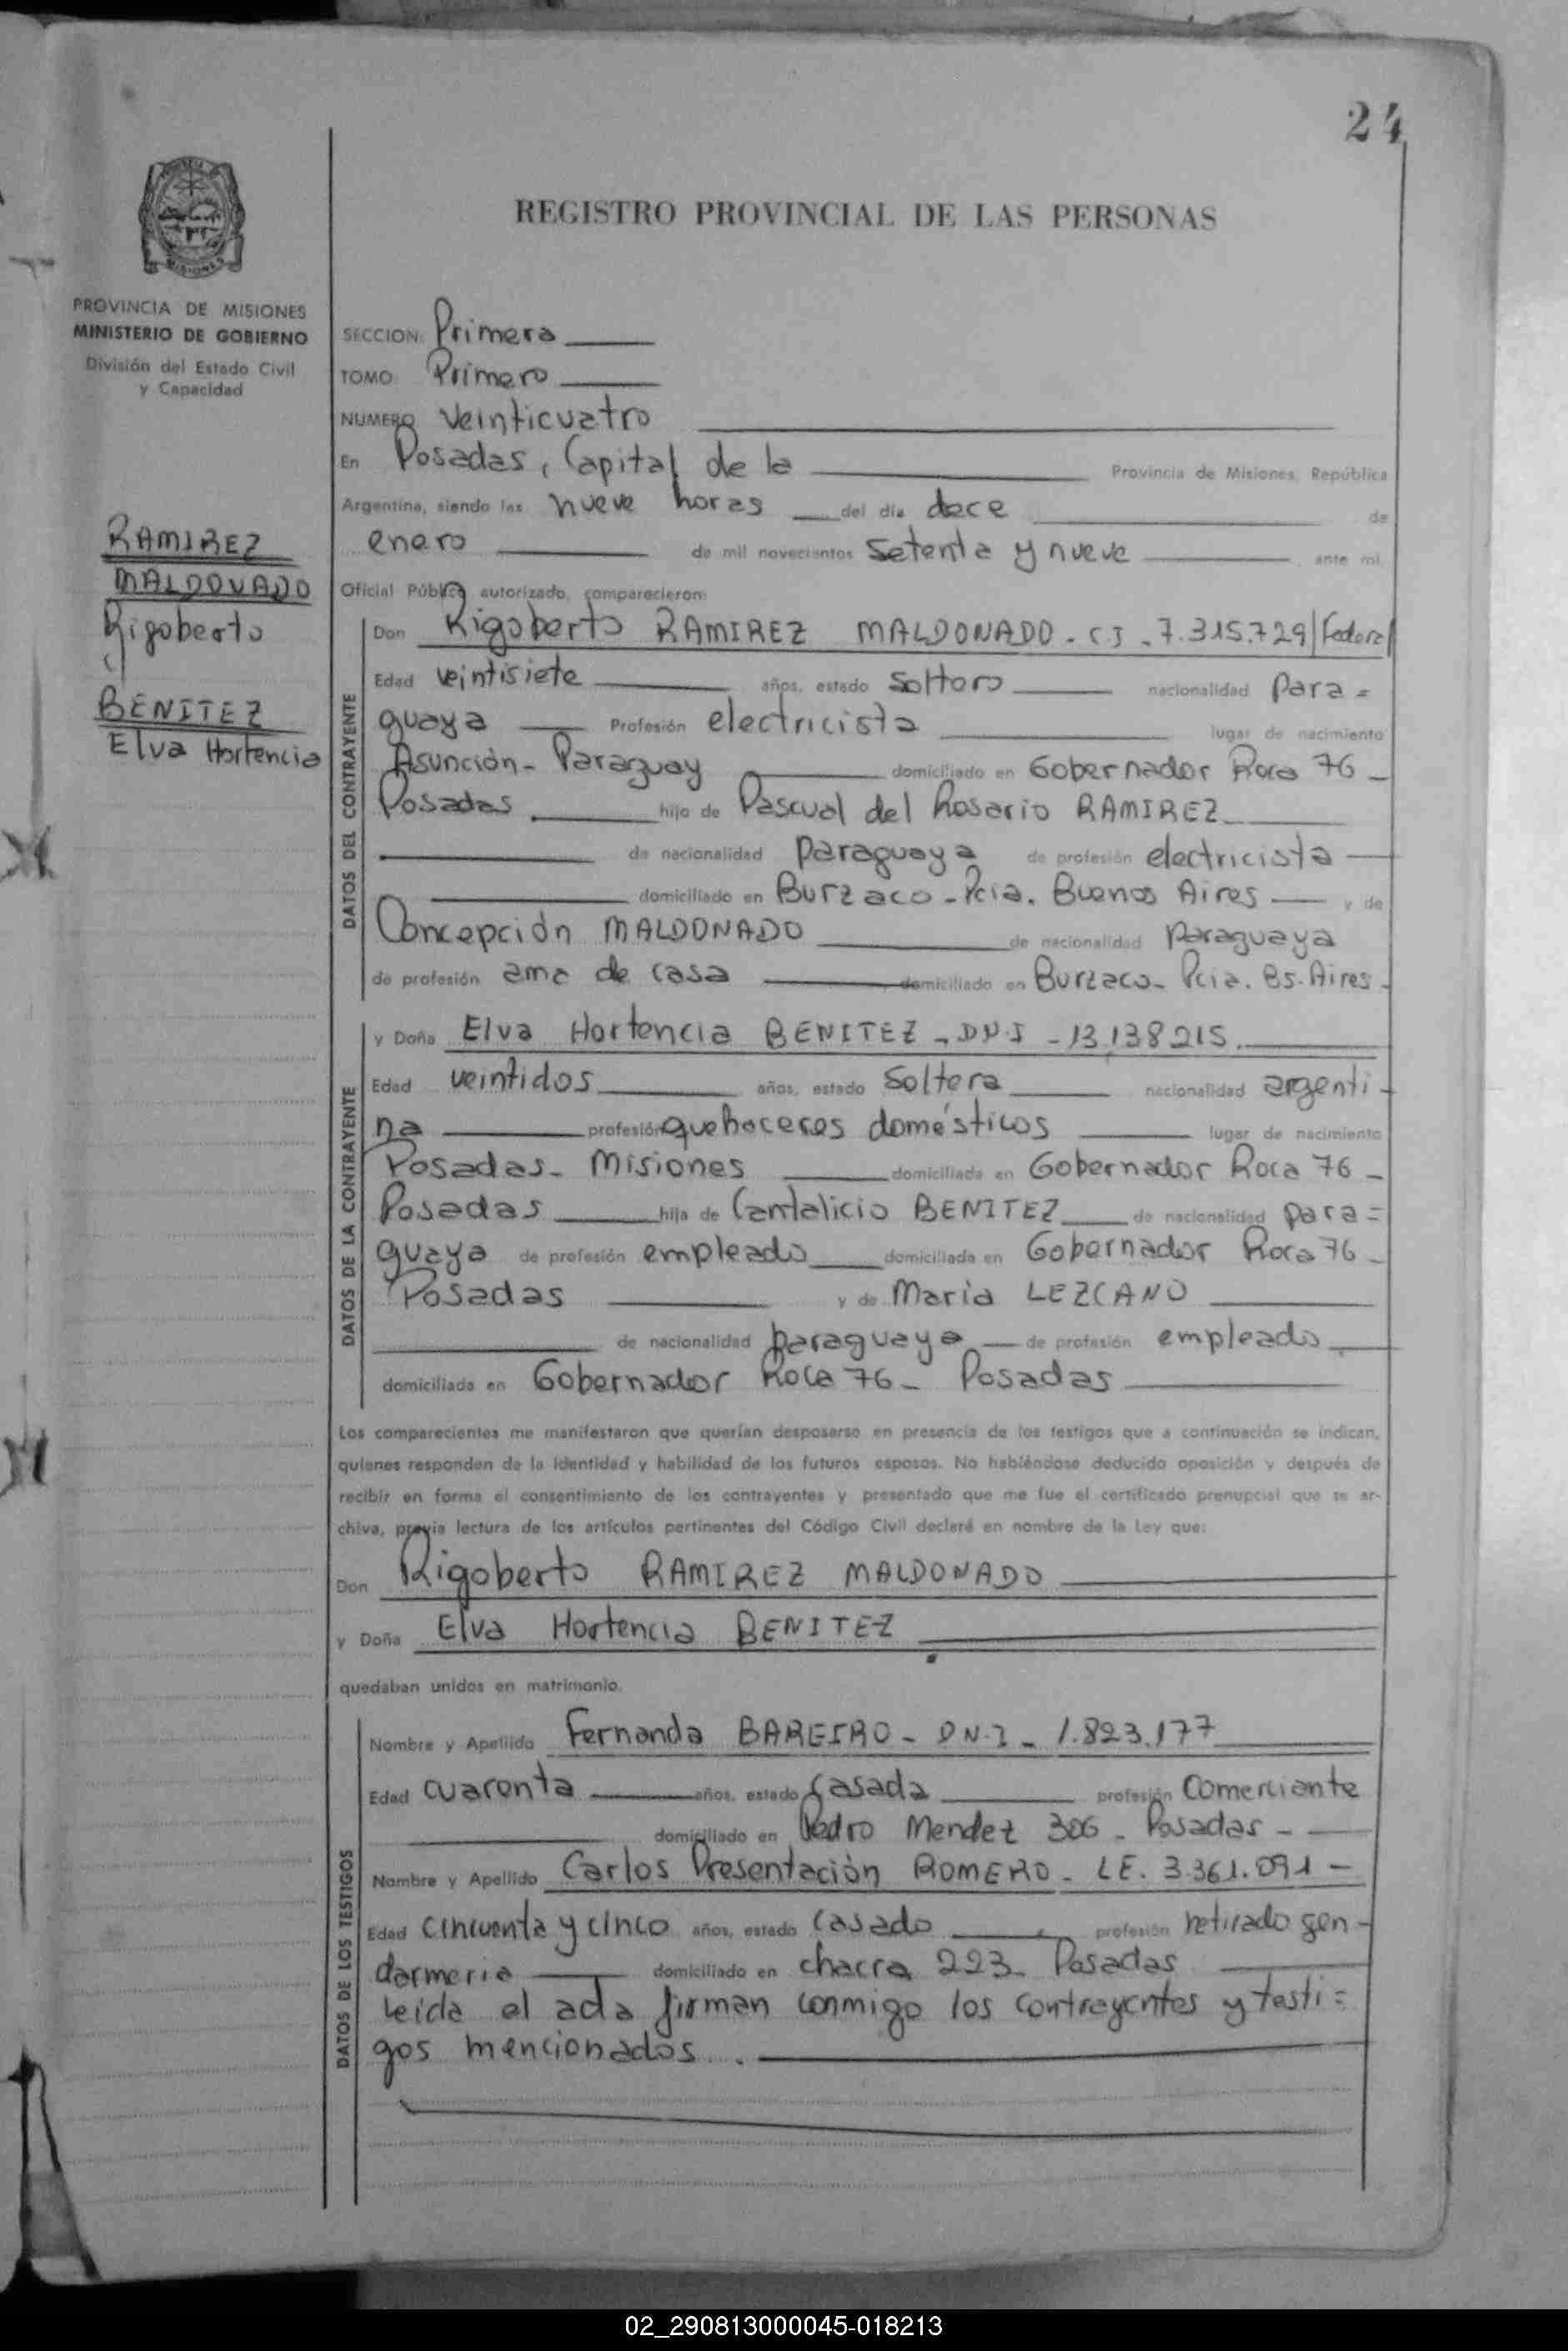 24
REGISTRO PROVINCIAL DE LAS PERSONAS
MISIONES
PROVINCIA DE MISIONES
MINISTERIO DE GOBIERNO
División del Estado Civil
y Capacidad
RAMIREZ
MALDONADO
Rigoberto
c/
BENITEZ
Elva Hortencia
SECCION: Primera
TOMO: Primero
NUMERO Veinticuatro
En Posadas, Capital de la Provincia de Misiones, República
Argentina, siendo las nueve horas del día doce de
enero de mil novecientos setenta y nueve, ante mí,
Oficial Público autorizado, comparecieron:
DATOS DEL CONTRAYENTE
Don Rigoberto RAMIREZ MALDONADO - C.I - 7.315.729/Federal
Edad veintisiete años, estado soltero nacionalidad para=
guaya Profesión electricista lugar de nacimiento
Asunción - Paraguay domiciliado en Gobernador Roca 76 -
Posadas hijo de Pascual del Rosario RAMIREZ
de nacionalidad paraguaya de profesión electricista
domiciliado en Burzaco - Pcia. Buenos Aires y de
Concepción MALDONADO de nacionalidad paraguaya
de profesión ama de casa domiciliado en Burzaco - Pcia. Bs. Aires -
DATOS DE LA CONTRAYENTE
y Doña Elva Hortencia BENITEZ - DN.I - 13.138215.
Edad veintidos años, estado soltera nacionalidad argenti-
na profesión quehaceres domésticos lugar de nacimiento
Posadas - Misiones domiciliada en Gobernador Roca 76 -
Posadas hija de Cantalicio BENITEZ de nacionalidad para=
guaya de profesión empleado domiciliada en Gobernador Roca 76 -
Posadas y de Maria LEZCANO
de nacionalidad paraguaya de profesión empleado
domiciliada en Gobernador Roca 76 - Posadas
Los comparecientes me manifestaron que querían desposarse en presencia de los testigos que a continuación se indican,
quienes responden de la identidad y habilidad de los futuros esposos. No habiéndose deducido oposición y después de
recibir en forma el consentimiento de los contrayentes y presentado que me fue el certificado prenupcial que se ar-
chiva, previa lectura de los artículos pertinentes del Código Civil declaré en nombre de la Ley que:
Don Rigoberto RAMIREZ MALDONADO
y Doña Elva Hortencia BENITEZ
quedaban unidos en matrimonio.
DATOS DE LOS TESTIGOS
Nombre y Apellido Fernanda BAREIRO - DN.I - 1.823.177
Edad cuarenta años, estado casada profesión comerciante
domiciliado en Pedro Mendez 306 - Posadas -
Nombre y Apellido Carlos Presentación ROMERO - LE. 3.361.091 -
Edad cincuenta y cinco años, estado casado profesión retirado gen-
darmeria domiciliado en chacra 223 - Posadas
leida el acta firman conmigo los contrayentes y testi=
gos mencionados.
02_290813000045-018213